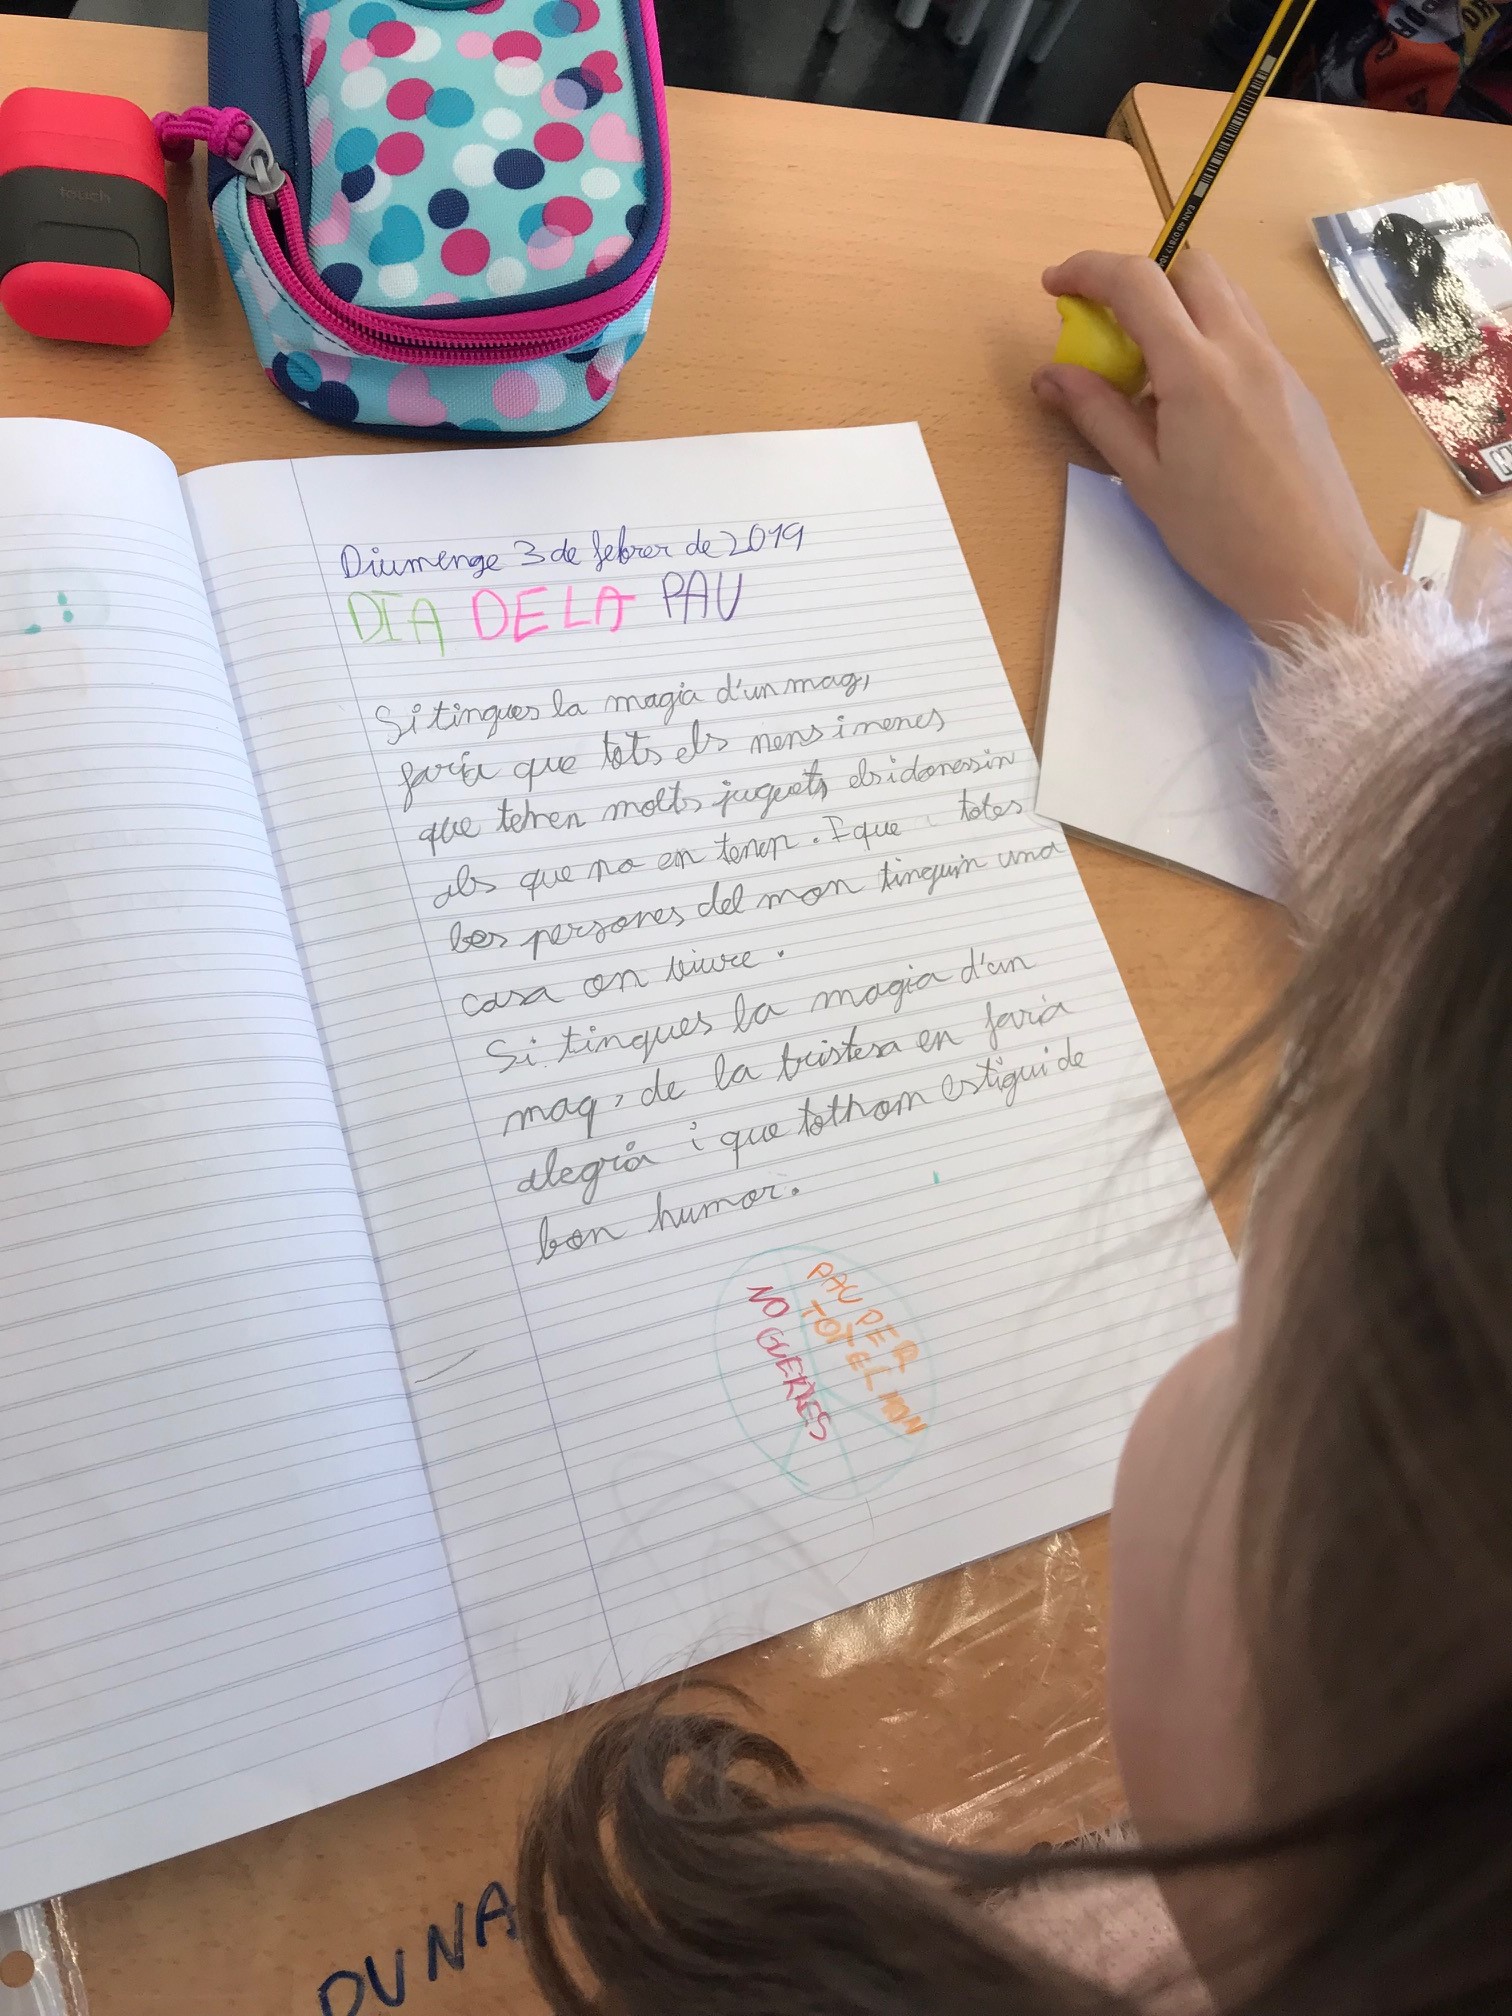 touch
EAN 40 07817 10
Diumenge 3 de febrer de 2019
DIA DE LA PAU
Si tingues la magia d'un mag,
faria que tots els nens i nenes
que tenen molts juguets, els idonessin
als que no en tenen. I que totes
les persones del mon tinguin una
casa on viure.
Si tingues la magia d'un
mag, de la tristesa en faria
alegria i que tothom estigui de
bon humor.
PAU PER
TOT EL MON
NO GUERRES
DUNA